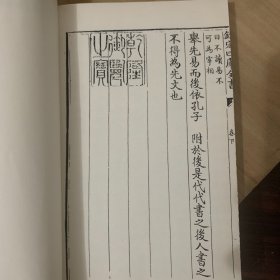 欽定四庫全書
卷下
曰不讀易不
可為宰相
舉先易而後依孔子 附於後是代代書之後人書之
不得為先文也
乾隆
御覽
之寶